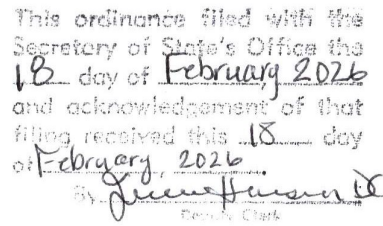 This ordinance filed with the
Secretary of State's Office the
18 day of February 2026
and acknowledgement of that
filing received this 18 day
of February, 2026.
By DC
Deputy Clerk